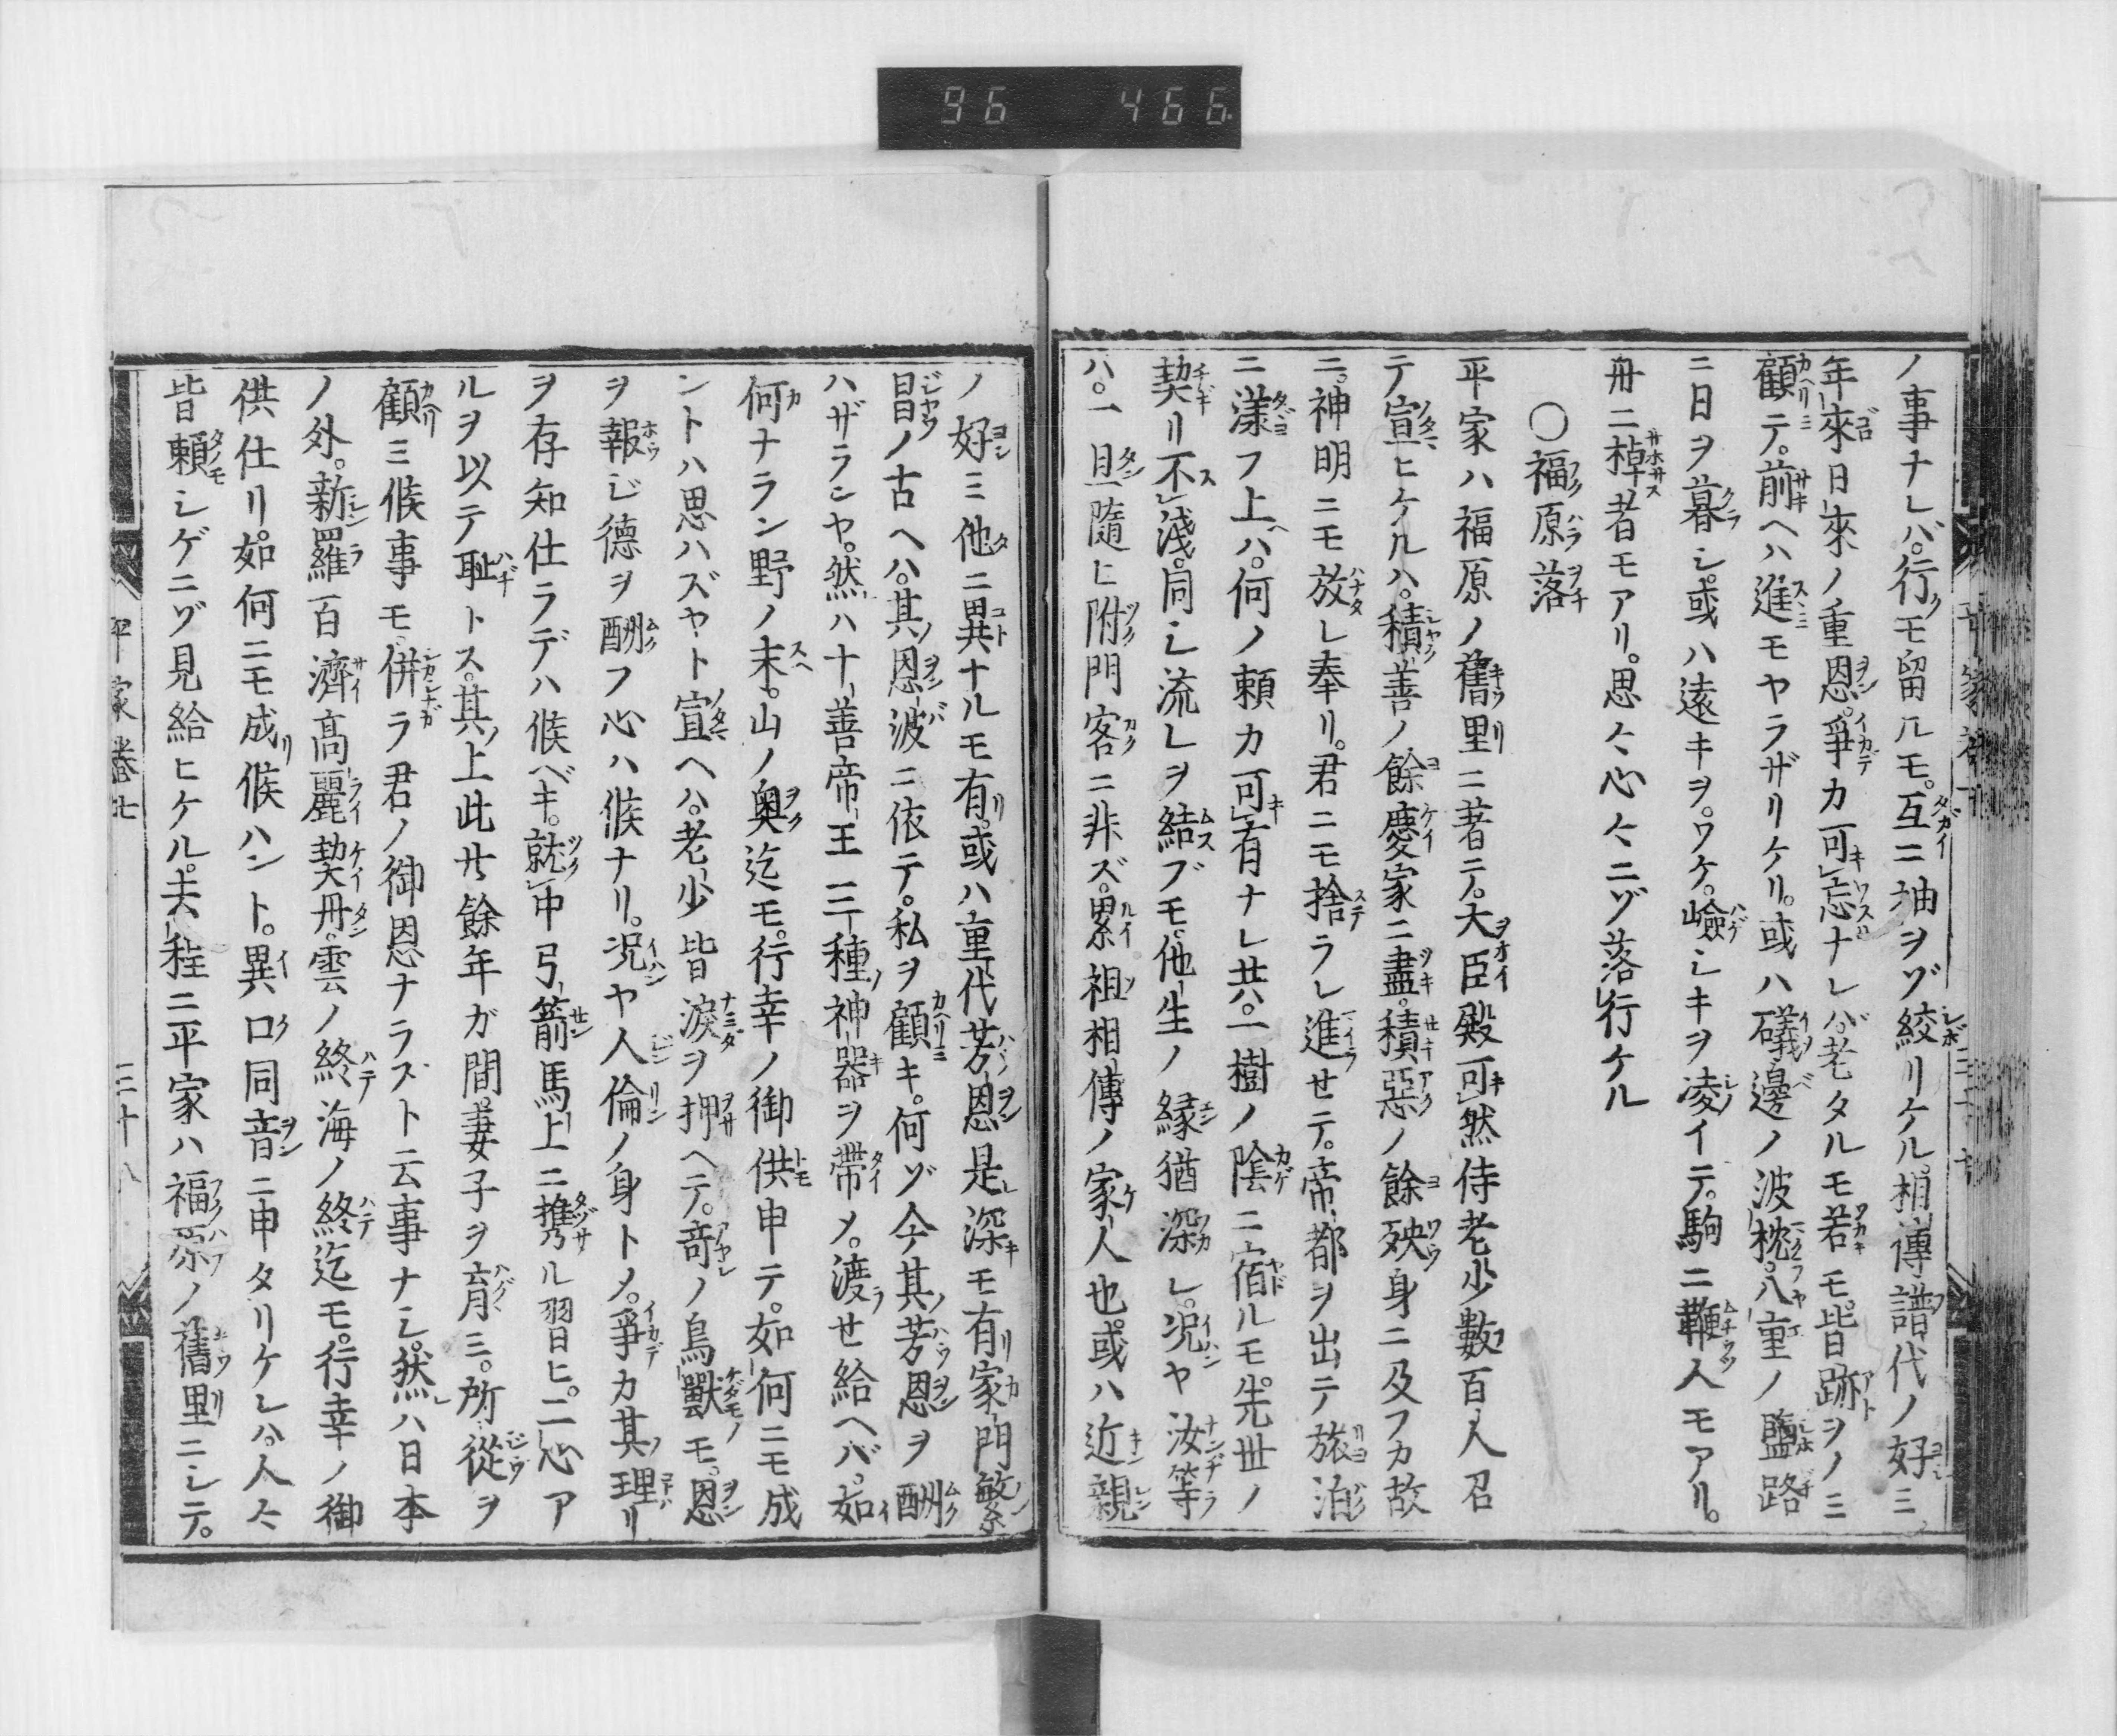 96 466
ノ事ナレバ。行モ留ルモ。互ニ袖ヲゾ絞リケル。相傳譜代ノ好ミ
年來日來ノ重恩。爭カ可忘ナレバ。老タルモ若モ。皆跡ヲノミ
顧テ。前ヘハ進モヤラザリケリ。或ハ礒邊ノ波枕。八重ノ鹽路
ニ日ヲ暮シ。或ハ遠キヲ。ワケ。嶮シキヲ凌イテ。駒ニ鞭人モアリ。
舟ニ棹者モアリ。思々心々ニゾ落行ケル
〇福原落
平家ハ福原ノ舊里ニ著テ。大臣殿可然侍老少數百人召
テ宣ヒケルハ。積善ノ餘慶家ニ盡。積惡ノ餘殃身ニ及フカ故
ニ。神明ニモ放レ奉リ。君ニモ捨ラレ進セテ。帝都ヲ出テ旅泊
ニ漾フ上ハ。何ノ頼カ可有ナレ共。一樹ノ陰ニ宿ルモ。先世ノ
契リ不淺。同シ流レヲ結ブモ。他生ノ縁猶深レ。況ヤ汝等
ハ。一旦隨ヒ附門客ニ非ズ。累祖相傳ノ家人也。或ハ近親
ノ好ミ他ニ異ナルモ有。或ハ重代芳恩是深モ有。家門繁
昌ノ古ヘハ。其恩波ニ依テ。私ヲ顧キ。何ゾ今其芳恩ヲ酬
ハザランヤ。然ハ十善帝王三種神器ヲ帶メ。渡セ給ヘバ。如
何ナラン野ノ末。山ノ奥迄モ。行幸ノ御供申テ。如何ニモ成
ントハ思ハズヤト宣ヘハ。老少皆淚ヲ押ヘテ。竒ノ鳥獸モ。恩
ヲ報ジ德ヲ酬フ心ハ候ナリ。況ヤ人倫ノ身トメ。爭カ其理リ
ヲ存知仕ラデハ候ベキ。就中弓箭馬上ニ携ル習ヒ。二心ア
ルヲ以テ耻トス。其上此廿餘年ガ間。妻子ヲ育ミ。所從ヲ
顧ミ候事モ。併ラ君ノ御恩ナラズト云事ナシ。然ハ日本
ノ外。新羅百濟高麗契丹。雲ノ終海ノ終迄モ。行幸ノ御
供仕リ。如何ニモ成候ハント。異口同音ニ申タリケレハ。人々
皆頼シゲニゾ見給ヒケル。去程ニ平家ハ福原ノ舊里ニシテ。
平家卷七
三十八